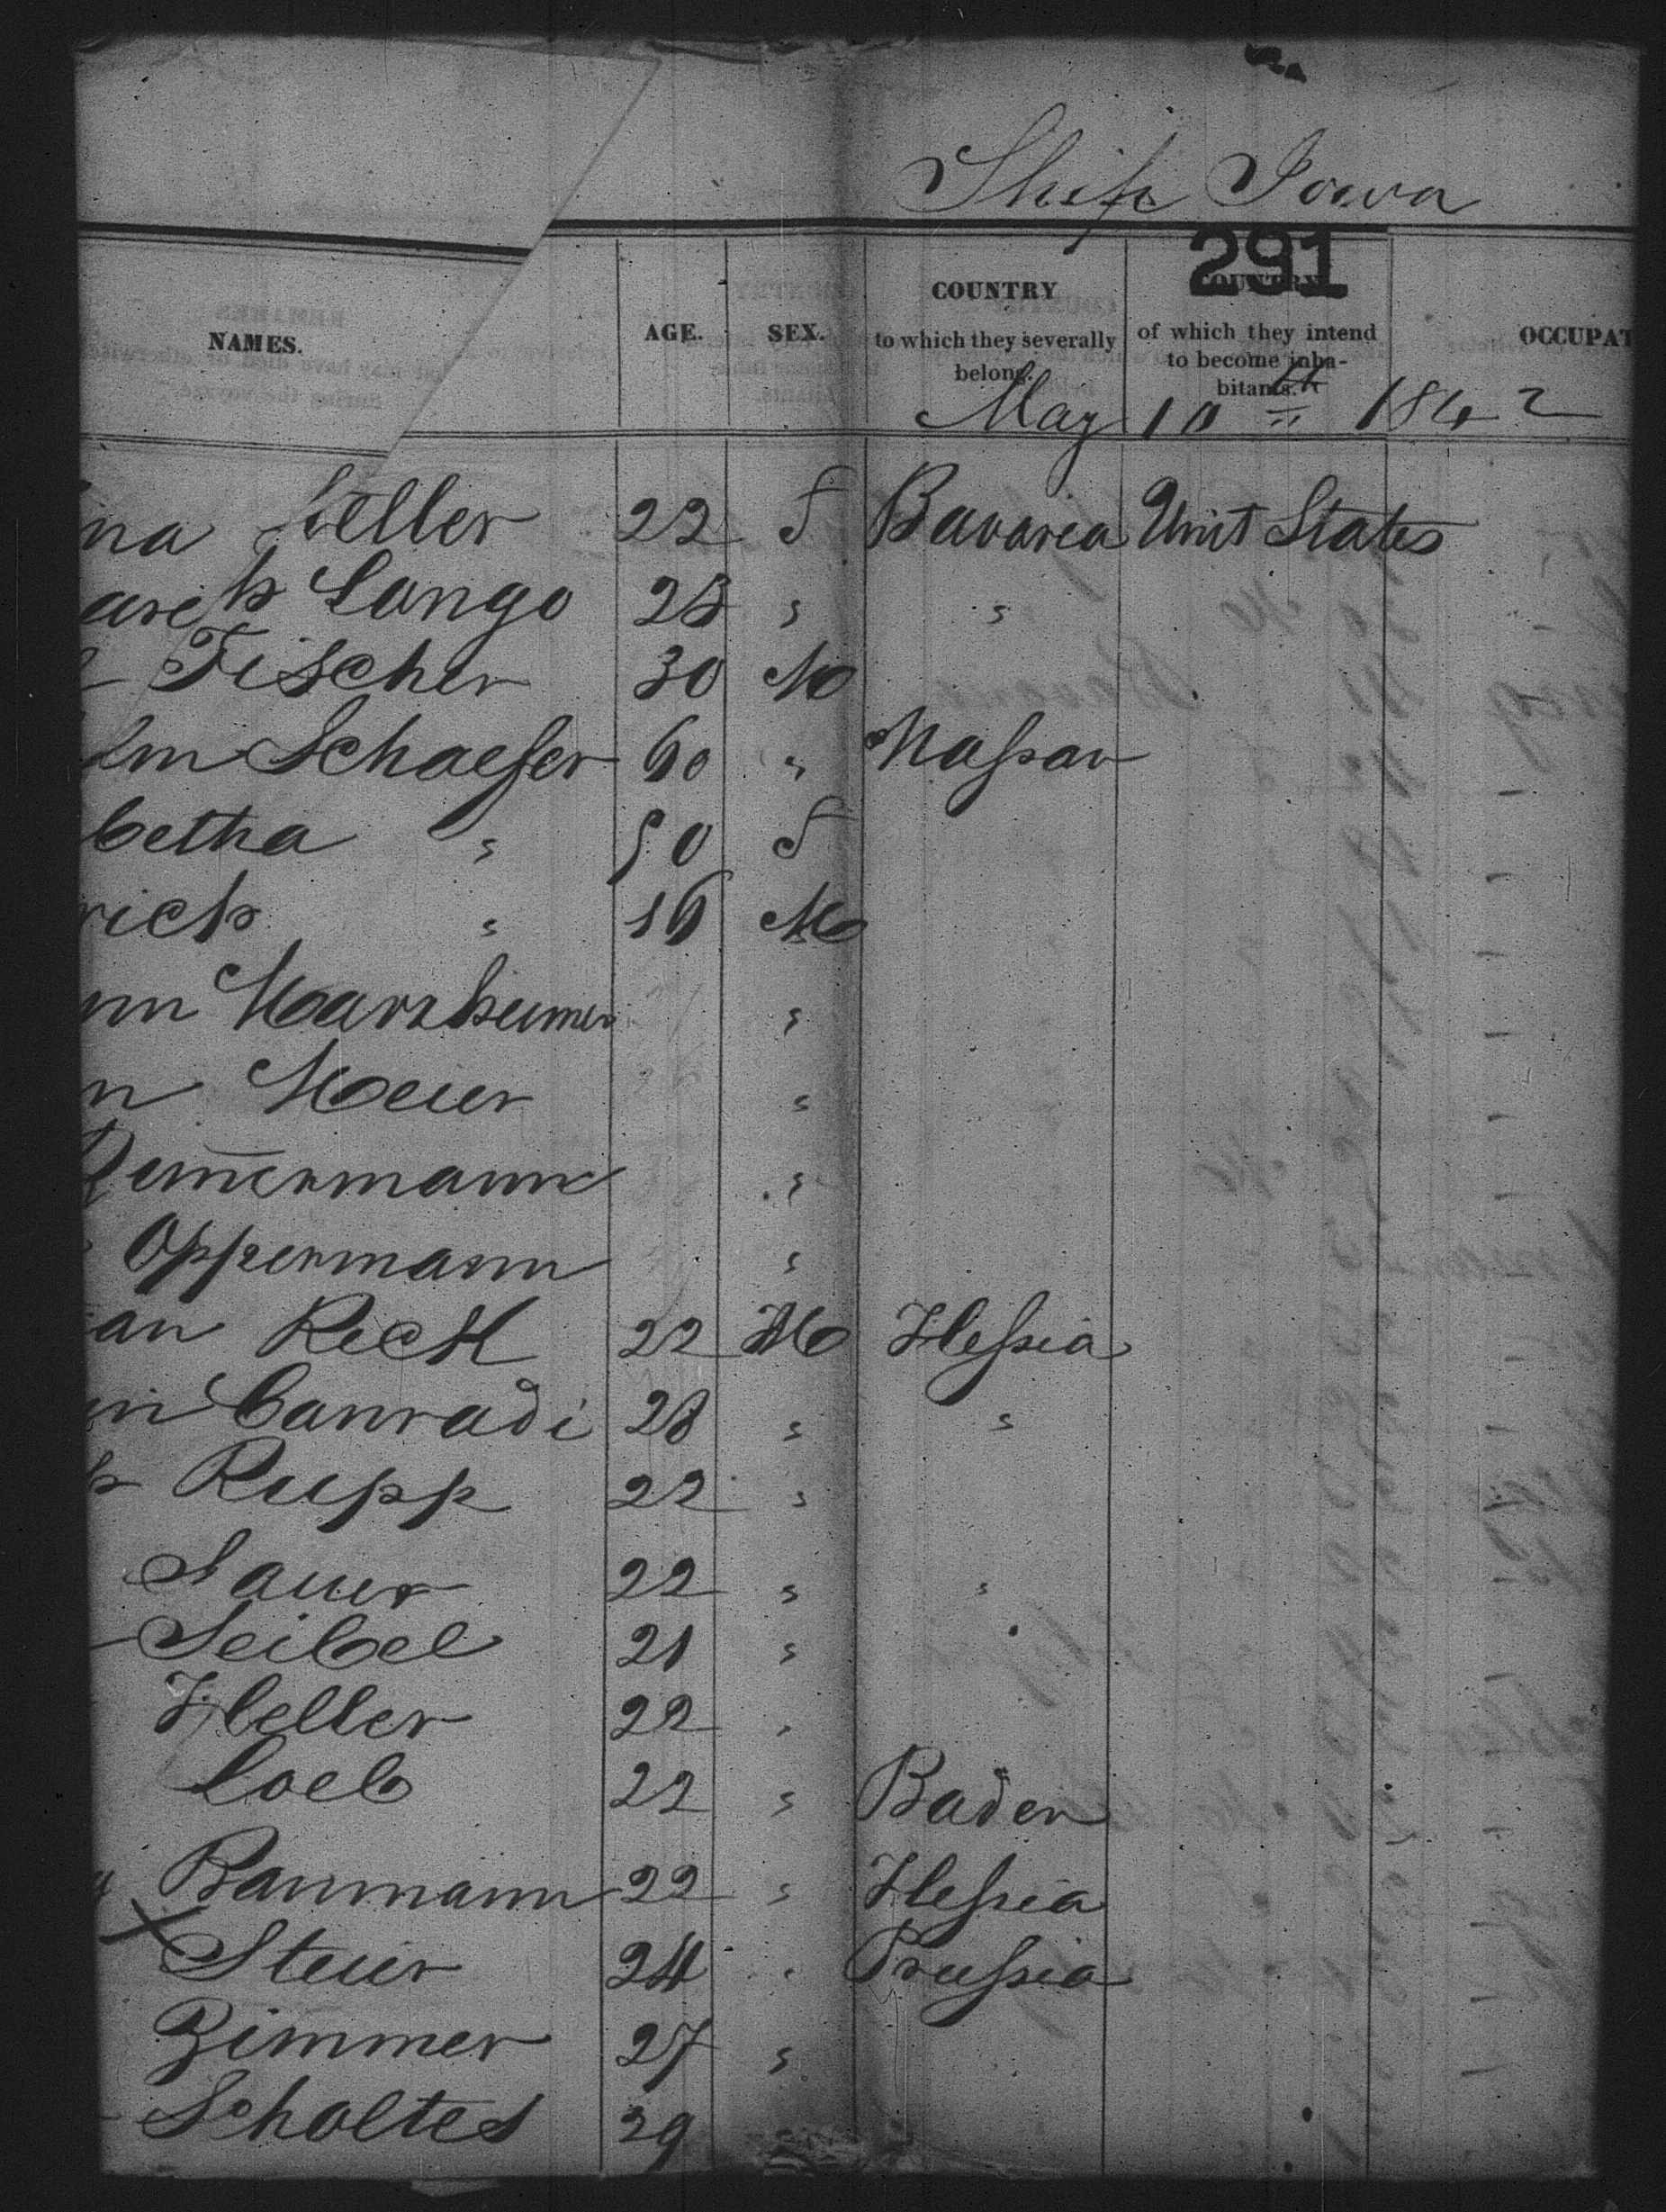 Ship Iowa
291
NAMES. AGE. SEX. COUNTRY to which they severally belong. COUNTRY of which they intend to become inhabitants. OCCUPAT
May 10th 1842
na Heller 22 f Bavaria Unit States
28 " "
Fischer 30 M
lm Schaefer 60 " Nassau
betha " 50 f
rich " 16 M
nn Marxheimer "
n Meier "
Zimmermann "
Oppermann "
an Reck 22 M Hessia
nn Conradi 28 " "
h Rupp 22 "
Sauer 22 " "
Seibel 21 "
Heller 22 "
Loeb 22 " Baden
Baumann 22 " Hessia
Steier 24 " Prussia
Zimmer 27 "
Scholtes 29